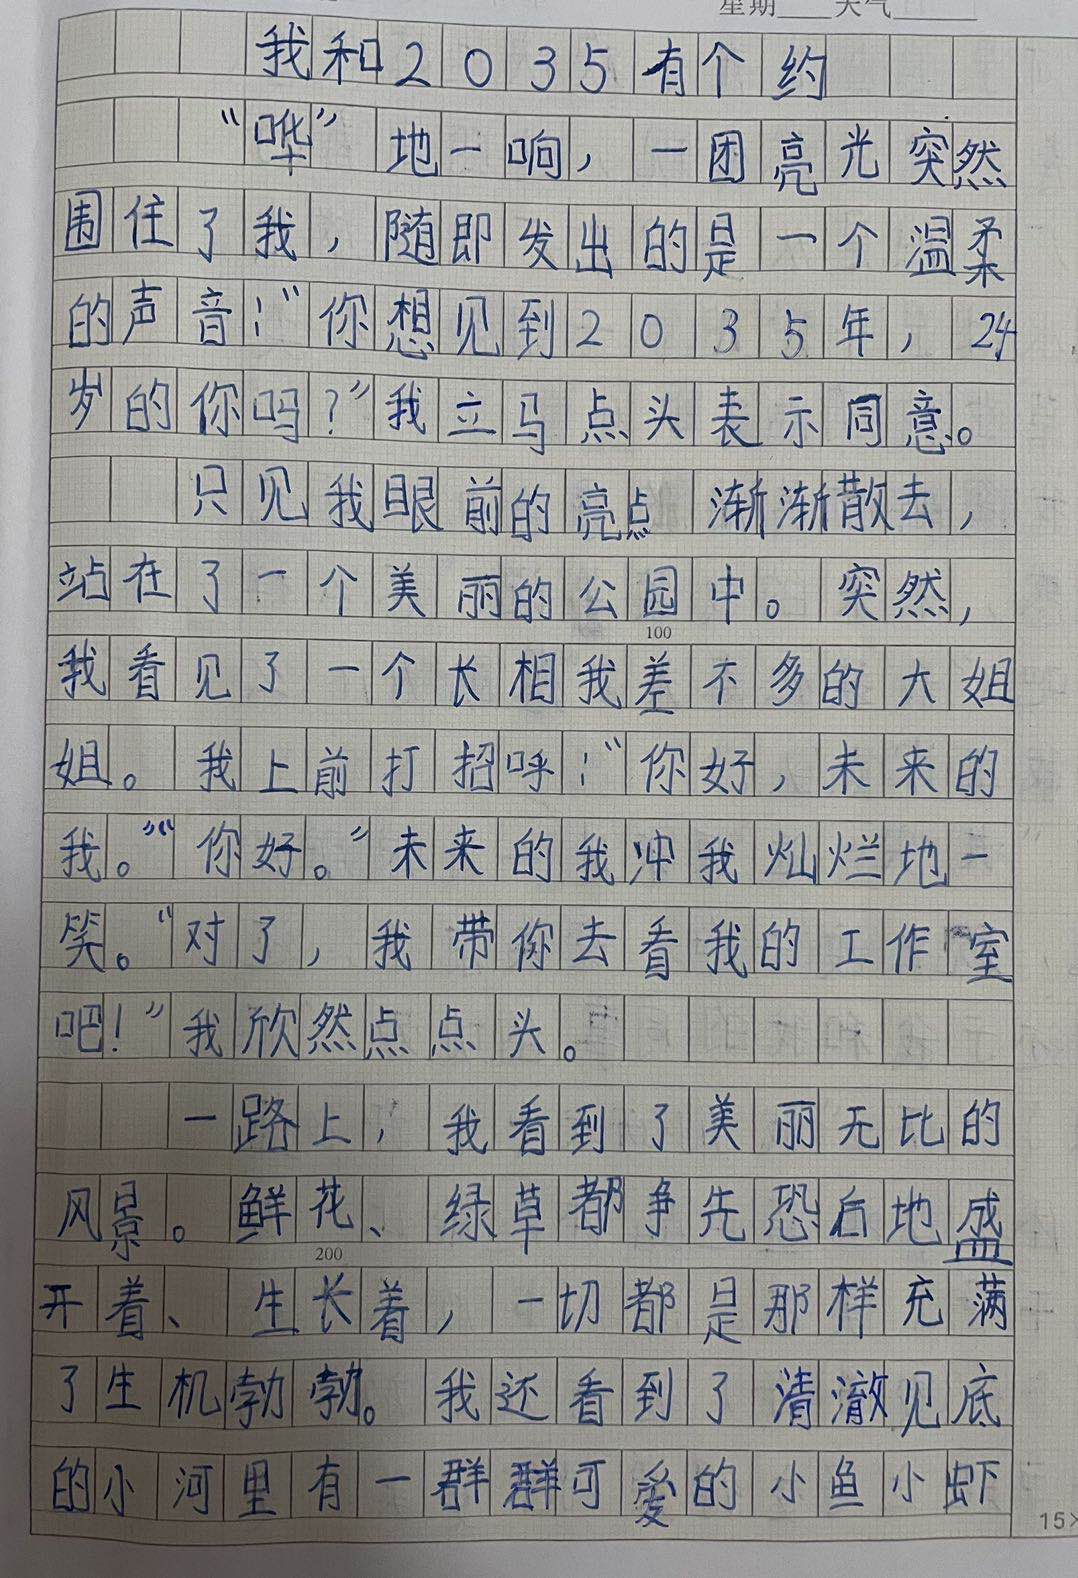 星期____天气______
我和2035有个约
“哗”地一响，一团亮光突然
围住了我，随即发出的是一个温柔
的声音：“你想见到2035年，24
岁的你吗？”我立马点头表示同意。
只见我眼前的亮点渐渐散去，
站在了一个美丽的公园中。突然，
100
我看见了一个长相我差不多的大姐
姐。我上前打招呼：“你好，未来的
我。”“你好。”未来的我冲我灿烂地一
笑。“对了，我带你去看我的工作室
吧！”我欣然点点头。
一路上，我看到了美丽无比的
风景。鲜花、绿草都争先恐后地盛
200
开着、生长着，一切都是那样充满
了生机勃勃。我还看到了清澈见底
的小河里有一群群可爱的小鱼小虾
15×